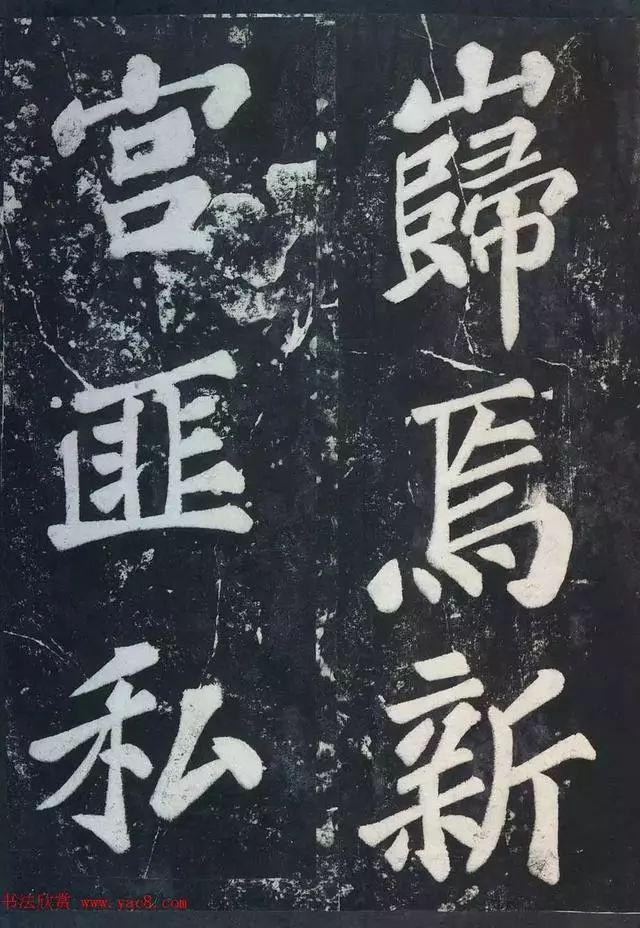 巋焉新
宫匪私
书法欣赏 www.yac8.com